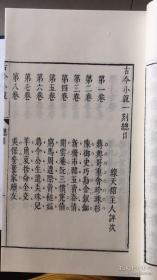 古今小說一刻總目
綠天館主人評次
第一卷
蔣興哥重會珍珠衫
第二卷
陳御史巧勘金釵鈿
第三卷
新橋市韓五賣春情
第四卷
閒雲菴阮三償冤債
第五卷
窮馬周遭際賣䭔媼
第六卷
葛令公生遣弄珠兒
第七卷
羊角哀捨命全交
第八卷
吳保安棄家贖友
古今小說
總目